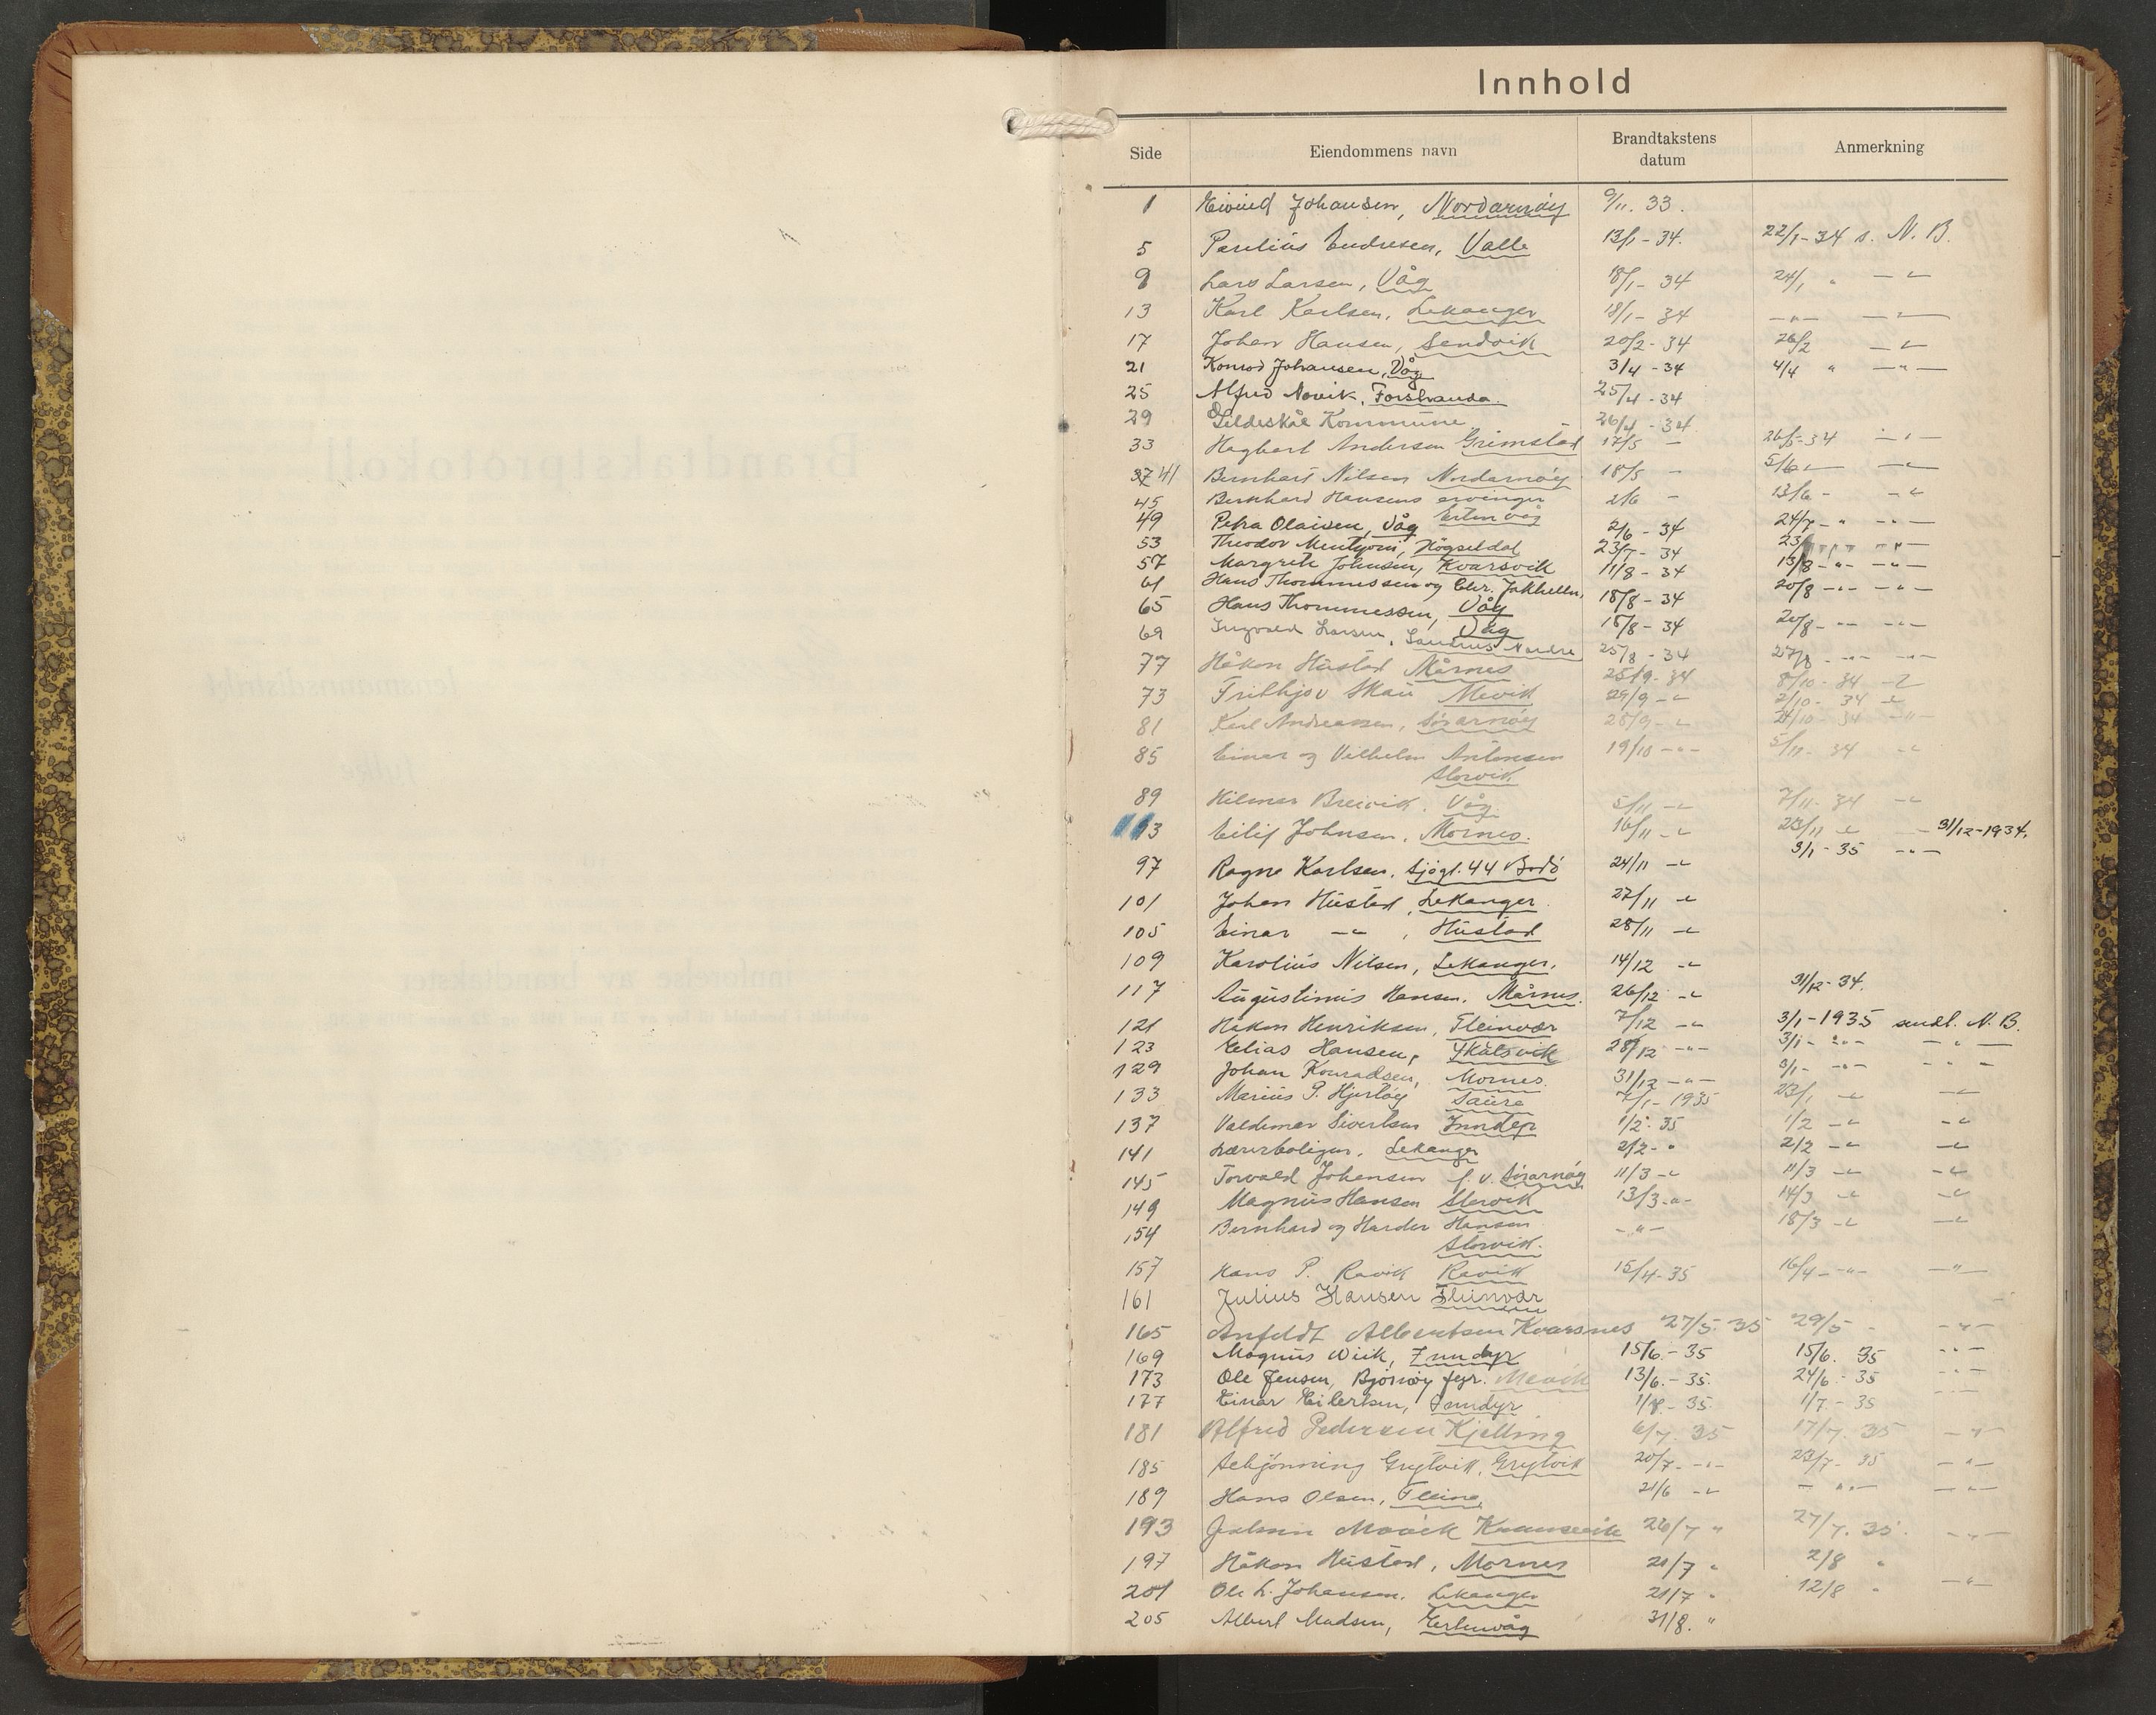 Innhold
Side Eiendommens navn Brandtakstens datum Anmerkning
1 Eivind Johansen, Nordarnøy 9/11. 33.
5 Paulius Endresen, Valle 13/1-34. 22/1-34 s. N. B.
9 Lars Larsen, Våg 18/1-34 24/1 " —"—
13 Karl Karlsen, Lekanger 18/1-34 —"— —"—
17 Johan Hansen, Sandvik 20/2-34 26/2 —"—
21 Konrad Johansen, Våg 3/4-34 4/4 " —"—
25 Alfred Novik, Forstranda. 25/4-34
29 Gildeskål Kommune 26/4-34
33 Hagbart Andersen Grimstad 17/5 — 26/5-34 —"—
37 41 Bernhart Nilsen Nordarnøy 18/5 — 5/6 — —"—
45 Bernhard Hansens arvinger 2/6 — 13/6 - —"—
Ertenvåg
49 Petra Olaisen, Våg 2/6-34 24/7 -"- —"—
53 Theodor Høgseldal 23/7-34 23/
57 Margrete Johnsen, Kvarsvik 11/8-34 13/8 -"- —"—
61 Hans Thommessen og Chr. Jakhelln, 18/8-34 20/8 -"- —"—
Våg
65 Hans Thommessen, Våg 18/8-34 20/8 -"- —"—
69 Ingvald Larsen, Sandnes Nordre 25/8-34 27/8 -"- —"—
77 Håkon Hustad Mårnes 25/9-34 8/10-34 —"—
73 Frithjov Skau Mevik 29/9 -"- 2/10-34 —"—
81 Karl Andreassen, Sørarnøy 28/9 -"- 24/10-34 —"—
85 Einar og Vilhelm Antonsen 19/10 -"- 5/11-34 —"—
Storvik
89 Hilmar Breivik, Våg. 5/11 -"- 7/11-34 —"—
93 Eilif Johnsen, Mornes. 16/11 -"- 23/11 -"- — 31/12-1934.
97 Ragna Karlsen, Sjøgt. 44 Bodø 24/11 -"- 3/1-35 —"—
101 Johan Hustad, Lekanger. 27/11 -"-
105 Einar —"—, Hustad 28/11 -"-
109 Karolius Nilsen, Lekanger. 14/12 -"-
117 Augustinus Hansen, Mårnes. 26/12 -"- 31/12-34.
121 Håkon Henriksen, Fleinvær 7/12 -"- 3/1-1935 sendt. N. B.
123 Elias Hansen, Skålsvik 28/12 -"- 3/1- -"- —"—
129 Johan Konradsen, Mornes. 31/12 -"- 3/1- -"- —"—
133 Marius P. Hjertøy Saura 7/1-1935 23/1 -"- —"—
137 Valdemar Sivertsen Inndyr 1/2-35 1/2 -"- —"—
141 Lærerboligen, Lekanger 2/2 -" 2/2 -"- —"—
145 Torvald Johansen f. v. Sørarnøy 11/3 -"- 11/3 -"- —"—
149 Magnus Hansen Storvik 13/3 -"- 14/3 -"- —"—
154 Bernhard og Harder Hansen —"— 18/3 -"- —"—
Storvik.
157 Hans P. Ravik Ravik 15/4-35 16/4 -"- —"—
161 Julius Hansen Fleinvær
165 Anfeldt Albertsen Kvarsnes 27/5. 35 29/5 - —"—
169 Magnus Wiik, Inndyr 15/6.-35 15/6. 35 —"—
173 Ole Jensen, Bjørnøy fyr. Mevik 13/6.-35. 24/6.-35 —"—
177 Einar Eilertsen, Inndyr 1/7-35. 1/7.-35 —"—
181 Alfred Pedersen Kjelling 6/7. 35 17/7. 35 —"—
185 Schjønning Grytvik, Grytvik 20/7. -"- 23/7-35 —"—
189 Hans Olsen, Fleina 21/6 -"- —"— —"—
193 Mevik 26/7 " 27/7. 35. —"—
197 Håkon Hustad, Mornes 21/7 " 2/8 "
201 Ole L. Johansen, Lekanger 21/7 " 12/8 " —"—
205 Albert Madsen, Ertenvåg 31/8. "